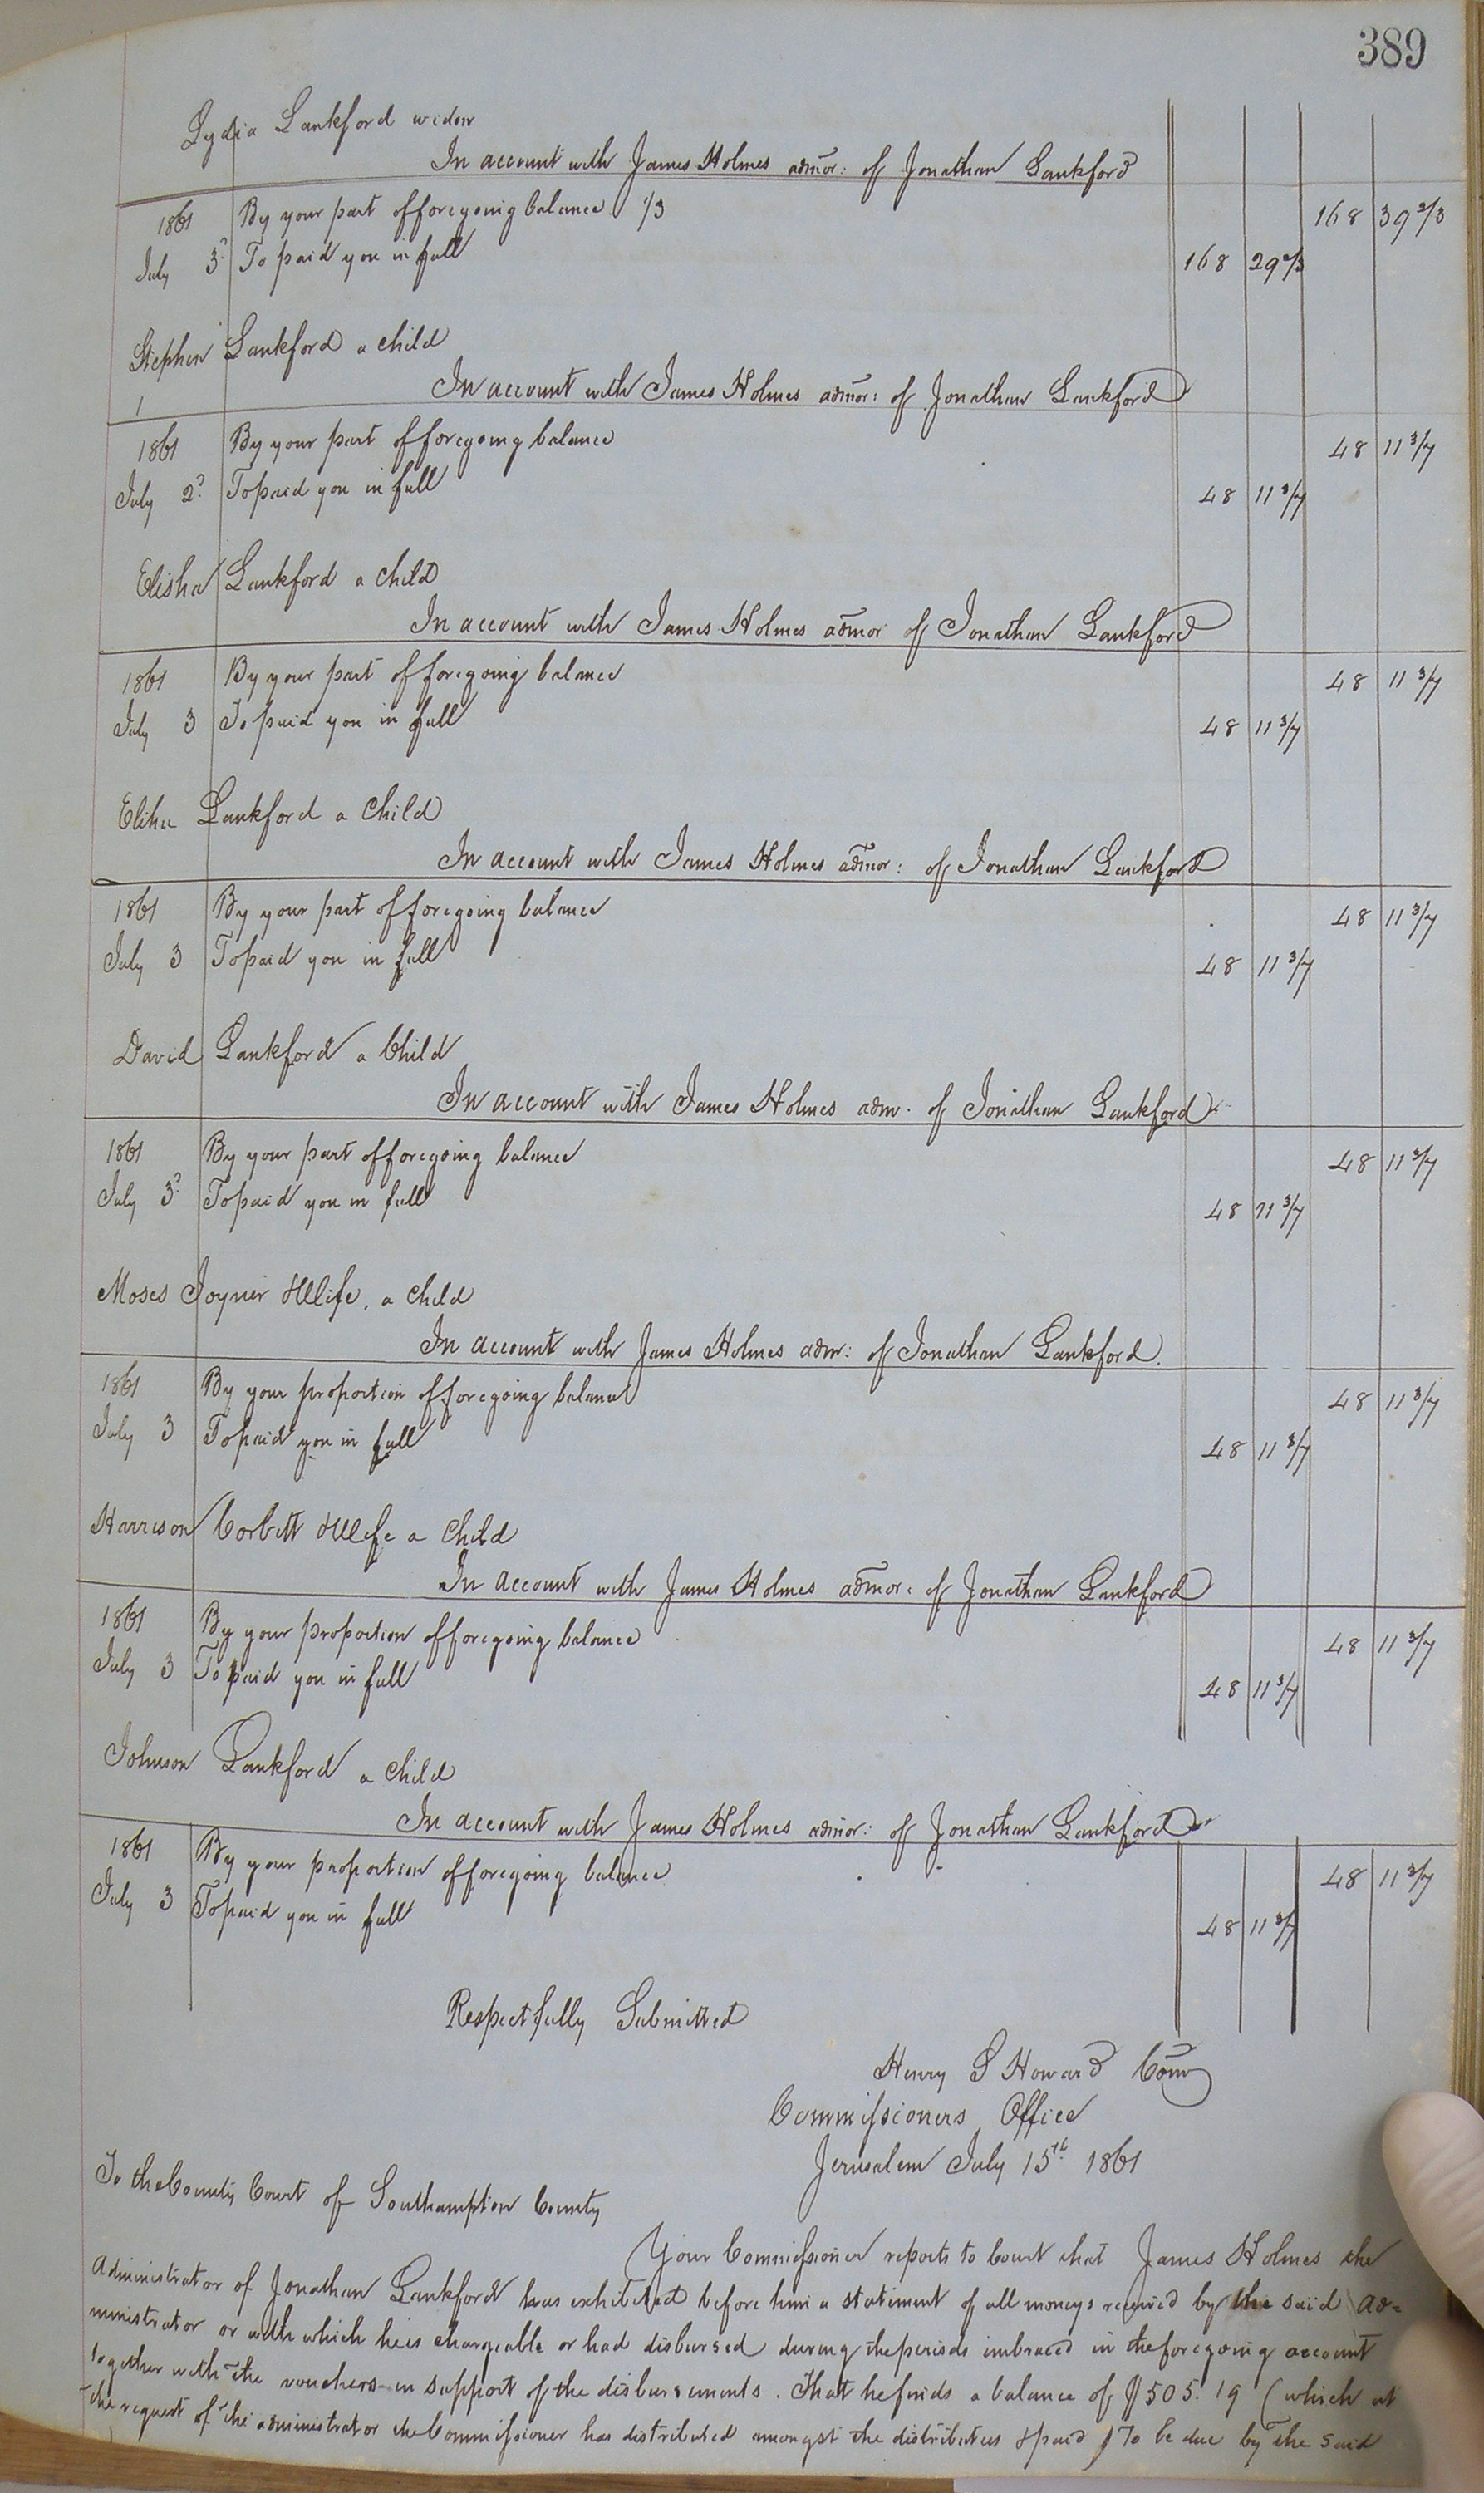 389
Lydia Lankford widow
In account with James Holmes admor: of Jonathan Lankford
1861 By your part of foregoing balance 1/3 168 39 2/3
July 3d To paid you in full 168 29 2/3
Stephen Lankford a child
In account with James Holmes admor: of Jonathan Lankford
1861 By your part of foregoing balance 48 11 3/7
July 2d To paid you in full 48 11 3/7
Elisha Lankford a child
In account with James Holmes admor of Jonathan Lankford
1861 By your part of foregoing balance 48 11 3/7
July 3 To paid you in full 48 11 3/7
Elihu Lankford a child
In account with James Holmes admor: of Jonathan Lankford
1861 By your part of foregoing balance 48 11 3/7
July 3 To paid you in full 48 11 3/7
David Lankford a Child
In account with James Holmes adm. of Jonathan Lankford
1861 By your part of foregoing balance 48 11 3/7
July 3d To paid you in full 48 11 3/7
Moses Joyner & Wife, a child
In account with James Holmes adm: of Jonathan Lankford.
1861 By your proportion of foregoing balance 48 11 3/7
July 3 To paid you in full 48 11 3/7
Harrison Corbett & Wife a child
In account with James Holmes admor: of Jonathan Lankford
1861 By your proportion of foregoing balance 48 11 3/7
July 3 To paid you in full 48 11 3/7
Johnson Lankford a child
In account with James Holmes admor: of Jonathan Lankford
1861 By your proportion of foregoing balance 48 11 3/7
July 3 To paid you in full 48 11 3/7
Respectfully Submitted
Henry S Howard Com
Commissioners Office
Jerusalem July 15th 1861
To the County Court of Southampton County
Your Commissioner reports to Court that James Holmes the
Administrator of Jonathan Lankford has exhibited before him a statement of all moneys received by the said ad=
ministrator or with which he is chargeable or had disbursed during the periods imbraced in the foregoing account
together with the vouchers in support of the disbursements. That he finds a balance of $505.19 (which at
the request of the administrator the Commissioner has distributed amongst the distributees & paid) To be due by the said